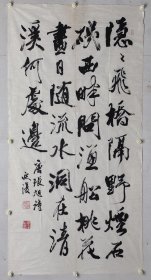 隱〻飛橋隔野煙石
磯西畔問漁船桃花
盡日隨流水洞在清
溪何處邊
唐張旭詩